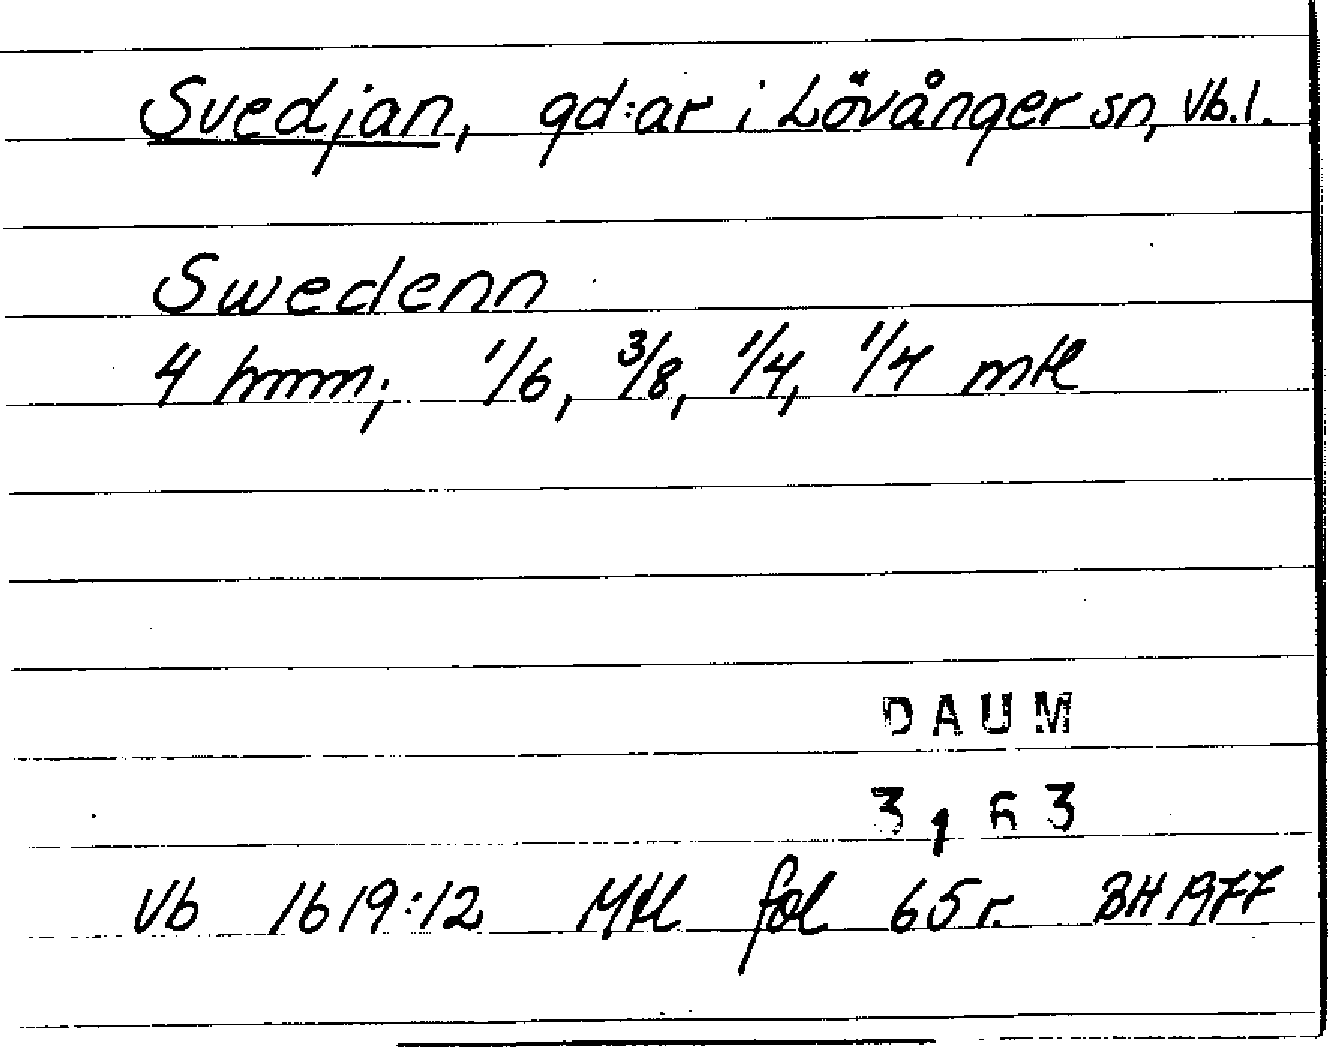 Svedjan, gd:ar i Lövånger sn, Vb.l.
Swedenn
4 hmm; 1/6, 3/8, 1/4, 1/4 mtl
DAUM
3163
Vb 1619:12 Mtl fol 65r. BH 1977